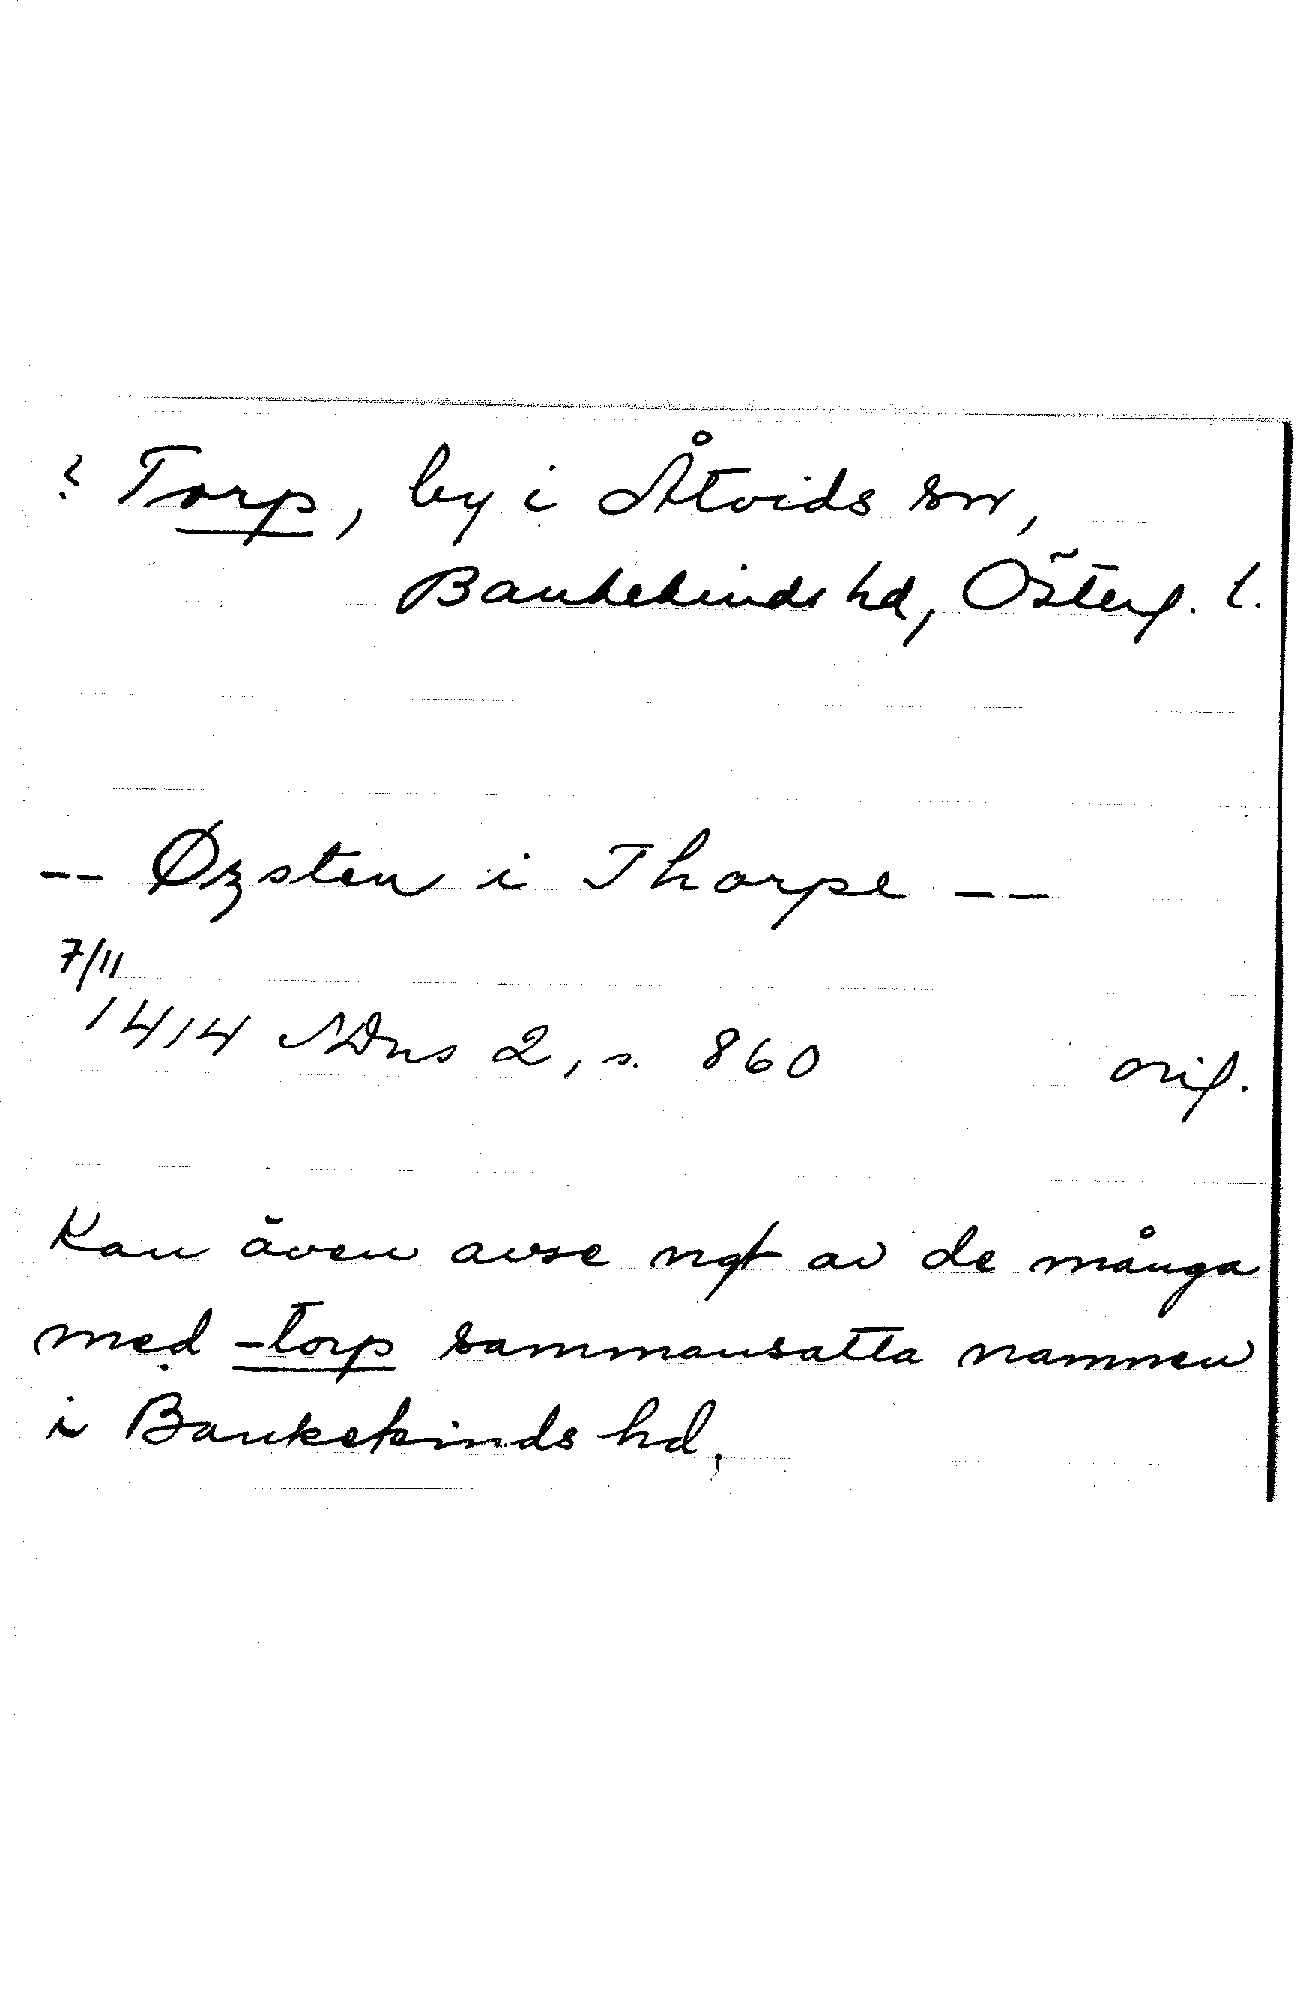 ? Torp, by i Åtvids sn,
Bankekinds hd, Österg. l.
-- Øzsten i Thorpe --
7/11
1414 SDns 2, s. 860 orig.
Kan även avse ngt av de många
med -torp sammansatta namnen
i Bankekinds hd.